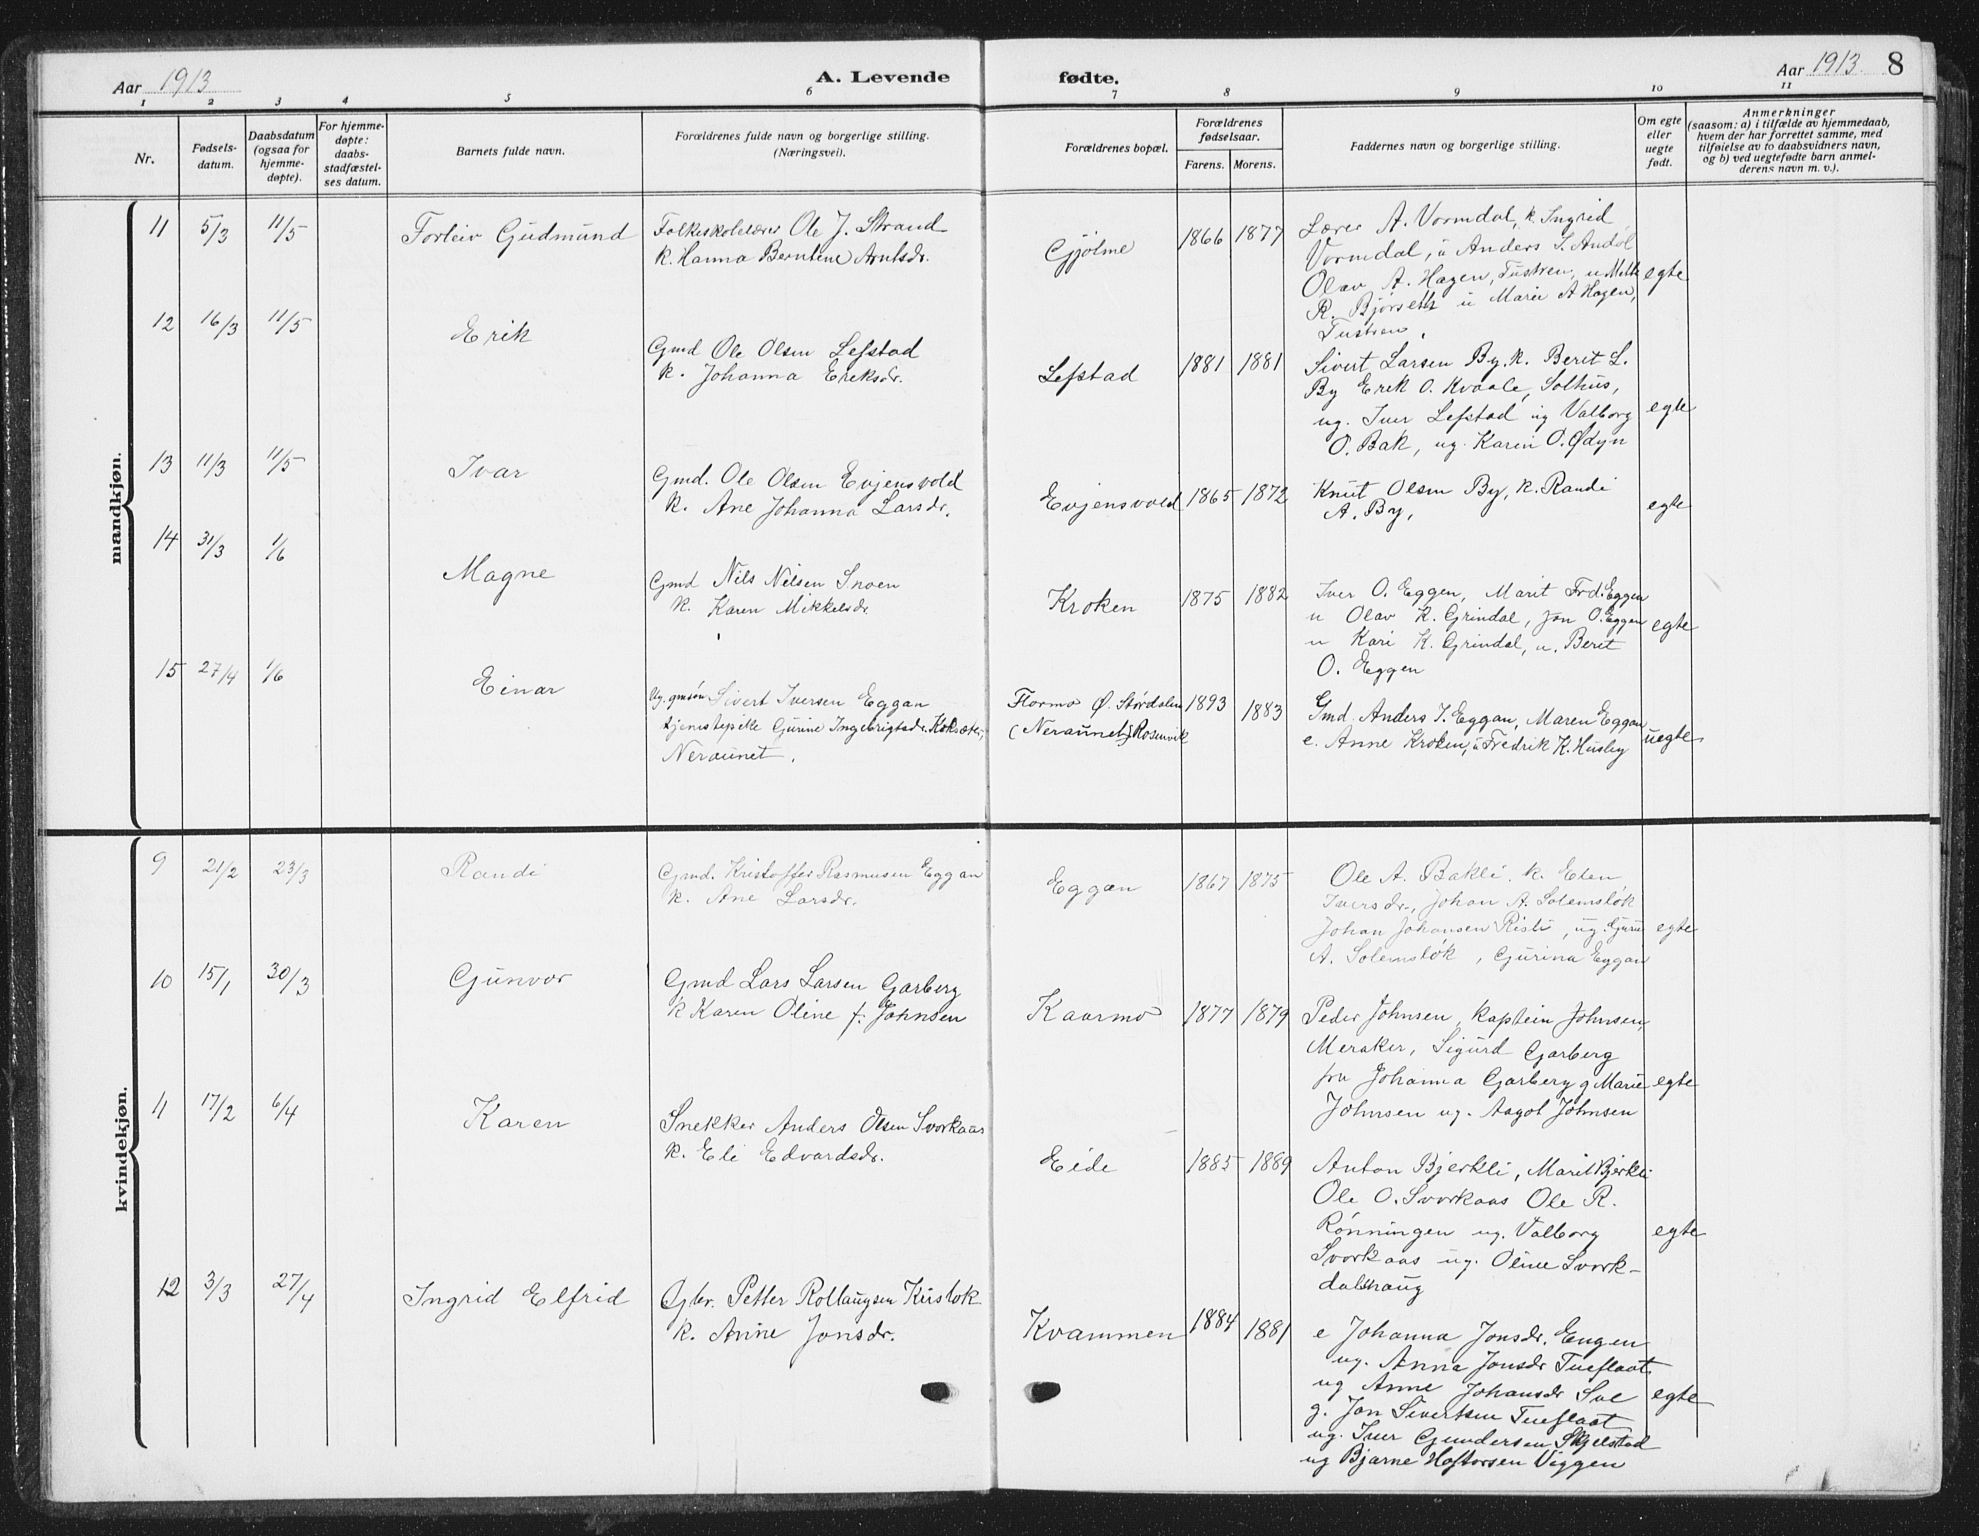 Aar 1913
A. Levende
fødte.
Aar 1913
8
1 2 3 4 5 6 7 8 9 10 11
Nr.
Fødsels-
datum.
Daabsdatum
(ogsaa for
hjemme-
døpte).
For hjemme-
døpte:
daabs-
stadfæstel-
ses datum.
Barnets fulde navn.
Forældrenes fulde navn og borgerlige stilling.
(Næringsvei).
Forældrenes bopæl.
Forældrenes
fødselsaar.
Farens. Morens.
Faddernes navn og borgerlige stilling.
Om egte
eller
uegte
født.
Anmerkninger
(saasom: a) i tilfælde av hjemmedaab,
hvem der har forrettet samme, med
tilføielse av to daabsvidners navn,
og b) ved uegtefødte barn anmel-
derens navn m. v.).
mandkjøn.
11 5/3 11/5 Torleiv Gudmund
Folkeskolelærer Ole J. Strand
k. Hanna Berntine Arntsdr.
Gjølme 1866 1877
Lærer A. Vormdal, k. Ingrid
Vormdal, u Anders S. Andøl
Olav A. Hagen, Tustren, u
R. Bjørseth u Marie A Hagen,
Tustren.
egte
12 16/3 11/5 Erik
Gmd Ole Olsen Lefstad
k. Johanna Eriksdr.
Lefstad 1881 1881
Sivert Larsen By, k. Berit L.
By Erik O. Kvaale, Solhus,
ug. Iver Lefstad ug Valborg
O. Bak, ug. Karen O. Ødyn
egte
13 11/3 11/5 Ivar
Gmd. Ole Olsen Evjensvold
k. Ane Johanna Larsdr.
Evjensvold 1865 1872
Knut Olsen By, k. Randi
A. By,
egte
14 31/3 1/6 Magne
Gmd Nils Nilsen Snoen
k. Karen Mikkelsdr.
Kroken 1875 1882
Iver O. Eggen, Marit Frd. Eggen
u Olav K. Grindal, Jon O. Eggen
u Kari K. Grindal, u. Berit
O. Eggen
egte
15 27/4 1/6 Einar
Ug. gmsøn Sivert Iversen Eggan
tjenestepike Gurine Ingebrigtsdr.
Neraunet.
Flormo Ø. Størdalen
(Neraunet) Rosenvik
1893 1883
Gmd. Anders I. Eggan, Maren Eggan
e. Anne Kroken, u Fredrik K. Husby
uegte
kvindekjøn.
9 21/2 23/3 Randi
Gmd. Kristoffer Rasmussen Eggan
k. Ane Larsdr.
Eggan 1867 1875
Ole A. Bakli, k. Elen
Iversdr., Johan A. Solemsløk
Johan Johansen Risli, ug. Guru
A. Solemsløk, Gurina Eggan
egte
10 15/1 30/3 Gunvor
Gmd Lars Larsen Garberg
k Karen Oline f. Johnsen
Kaarmo 1877 1879
Peder Johnsen, Kaptein Johnsen,
Meraker, Sigurd Garberg
fru Johanna Garberg g Marie
Johnsen ug. Aagot Johnsen
egte
11 17/2 6/4 Karen
Snekker Anders Olsen Svorkaas
k. Eli Edvardsdr.
Eide 1885 1889
Anton Bjerkli, Marit Bjerkli
Ole O. Svorkaas Ole R.
Rønningen ug. Valborg
Svorkaas ug. Oline Svork-
dalshaug
egte
12 3/3 27/4 Ingrid Elfrid
Gbr. Petter Rollaugsen Kusløk
k. Anne Jonsdr.
Kvammen 1884 1881
e Johanna Jonsdr. Engen
ug. Anna Jonsdr Tueflaat
ug Anne Johansdr Soe
g. Jon Sivertsen Tueflaat
ug. Iver Gundersen Skjelstad
ug Bjarne Hoftorsen Viggen
egte